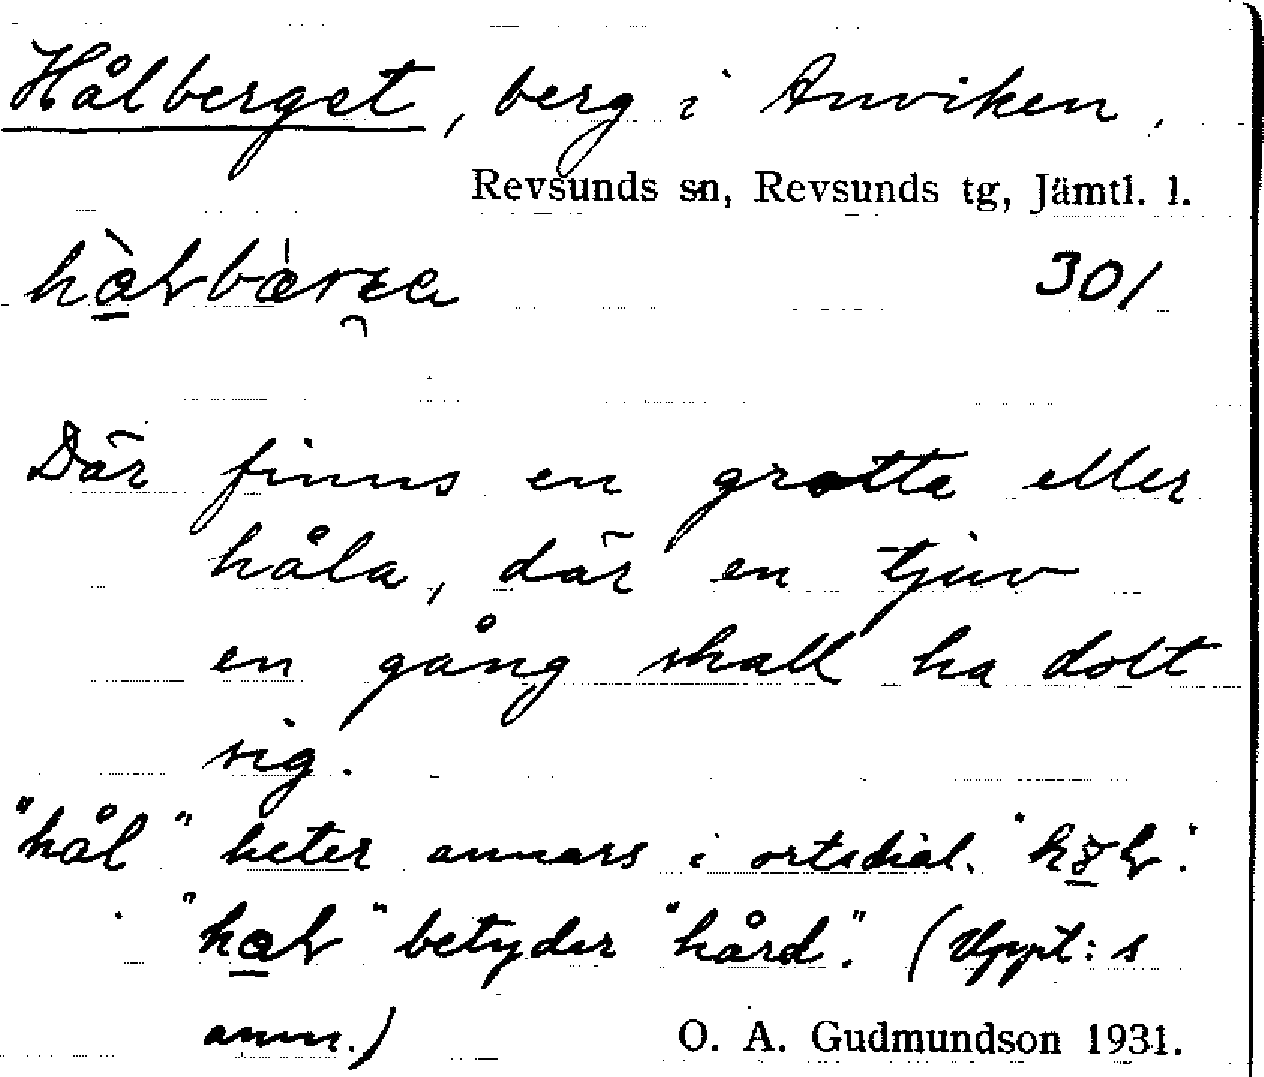 Hålberget, berg i Anviken.
Revsunds sn, Revsunds tg, Jämtl. l.
301
Där finns en grotta eller
håla, där en tjuv
en gång skall ha dolt
sig.
"hål" heter annars i ortsdial.
betyder "hård". (Uppt:s
anm.)
O. A. Gudmundson 1931.